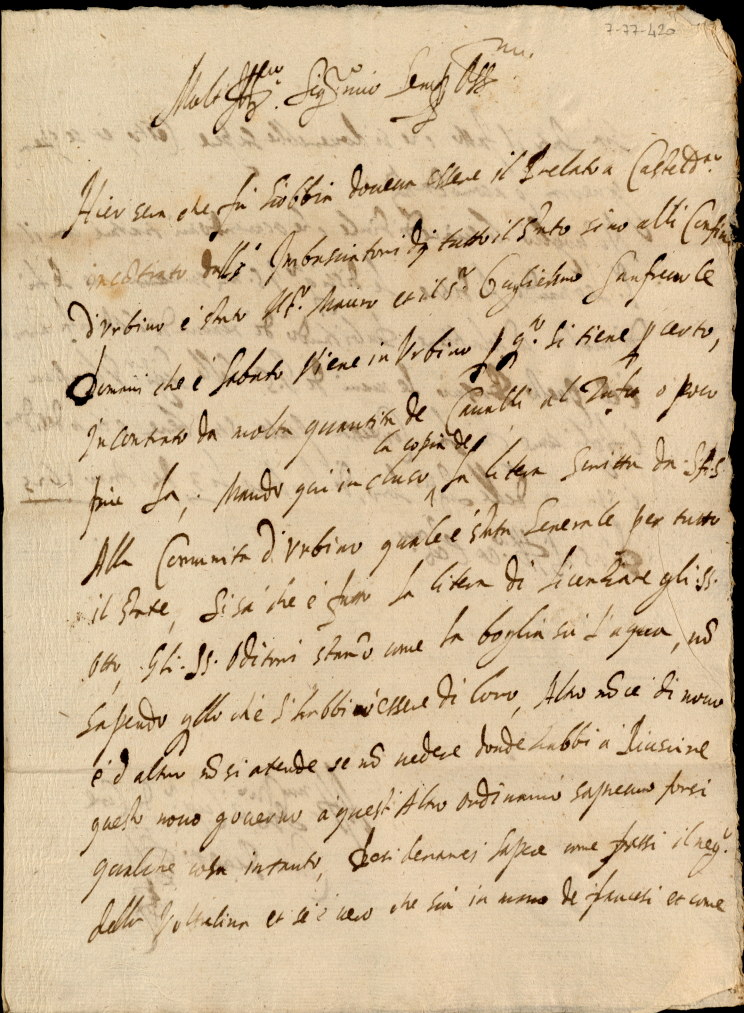 7-77-420
Molt Ill.re Sig.r mio Semp.e Oss.mo
Hier sera che fu Giobbia doveva essere il Prelato a Casteld.te
incontrato dalli Imbasciatori di tutto il Stato sino alli Confini
d'Urbino è stato Mauro et il S.r Guglielmo
domani che è sabato viene in Urbino p q.to si tiene p certo,
incontrato da molta quantità de Cavalli al o poco
più la, Mando qui incluso la copia de la litera scritta da
Alla Comunità d'Urbino quale è stata Generale per tutto
il Stato, si sa che è la litera di licentiare gli SS.
Otto, Gli SS. Oditori stano come la boglia su l'aqua, nõ
sapendo qllo che s'habbi essere di loro, Altro nõ cè di novo
è d'altro nõ si atende se nõ vedere donde habbi a Riuscire
questo novo governo a questi Altro ordinario sapremo forsi
qualche cosa intanto, desideramei sapere come passi il neg.o
della Voltolina et se è vero che sia in mano de francesi et come